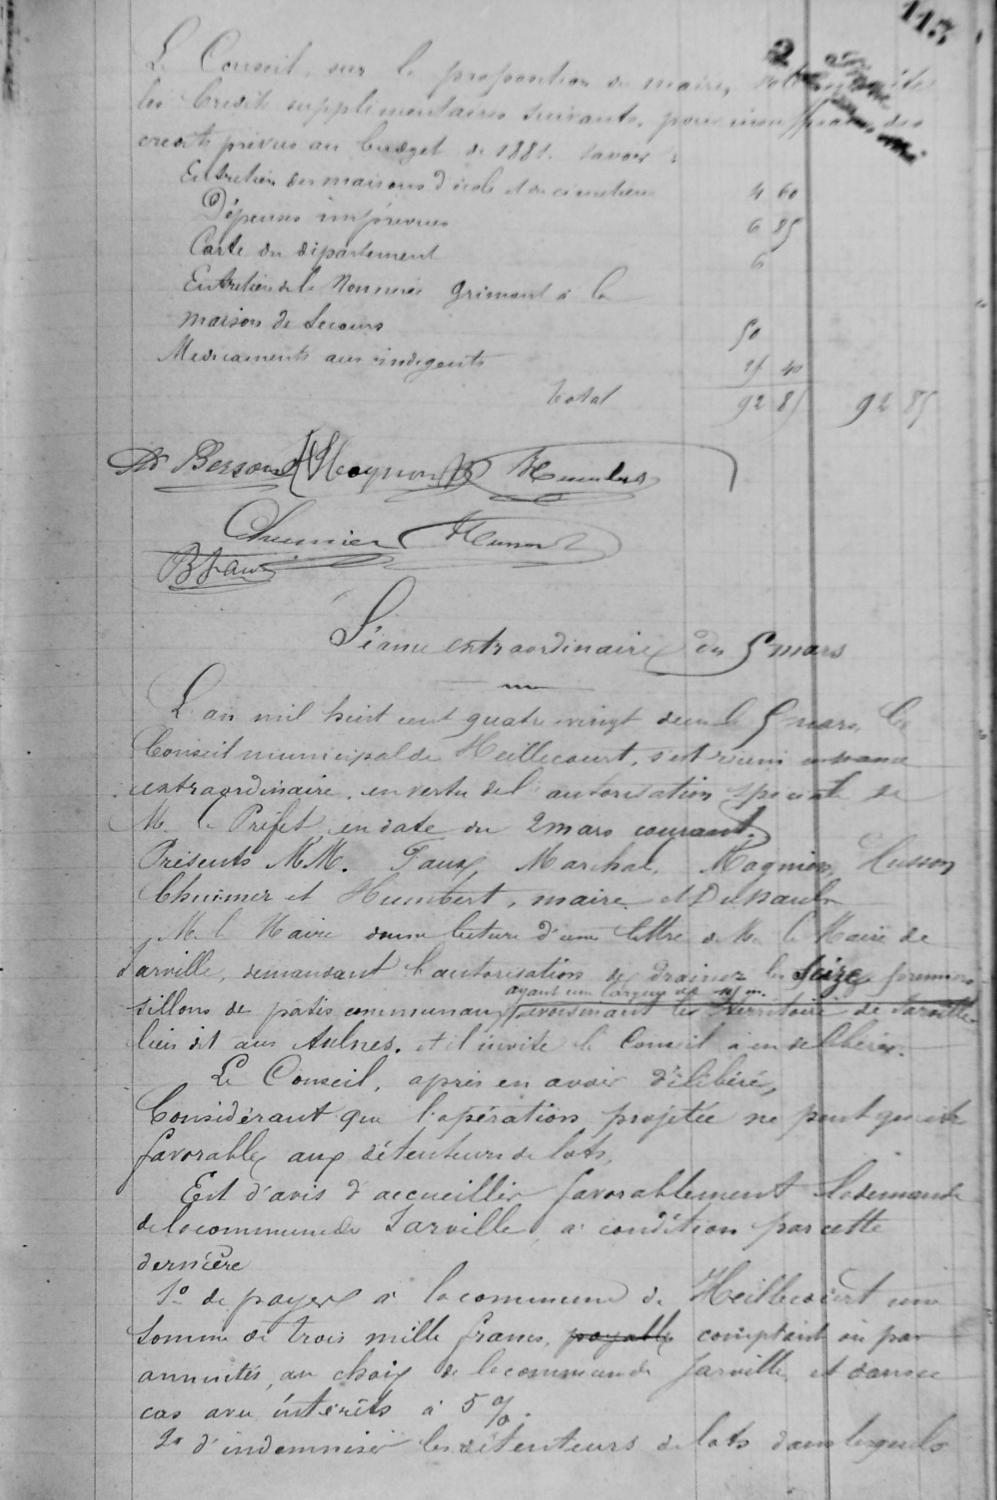 113
Le Conseil, sur la proposition du maire, vote
les Credits supplémentaires suivants, pour insuffisance des
credits prévus au budget de 1881. savoir :
Entretien des maisons d'école et du cimetière 4 60
Dépenses imprévues 6 85
Carte du département 6
Entretien de la Nommée Grimont à la
maison de Secours 50
Medicaments aux indigents 25 40
Total 92 85 92 85
Séance extraordinaire du 5 mars
L'an mil huit cent quatre vingt deux le 5 mars, le
Conseil municipal de Heillecourt, s'est réuni en séance
extraordinaire, en vertu de l'autorisation spéciale de
M. le Préfet en date du 2 mars courant.
Présents MM. Faux, Marchal, Magnien, Husson
Chuimer et Humbert, maire et Dupaul
M. le Maire donne lecture d'une lettre de M. le Maire de
Jarville, demandant l'autorisation de drainer les seize premiers
ayant une largeur de m.
sillons de patis communaux avoisinant le territoire de Jarville
lieu dit aux Aulnes. et il invite le Conseil à en délibérer.
Le Conseil, après en avoir délibéré,
Considérant que l'opération projetée ne peut qu'être
favorable aux détenteurs de lots,
Est d'avis d'accueillir favorablement la demande
de la commune de Jarville, à condition par cette
dernière
1o de payer à la commune de Heillecourt une
somme de trois mille francs, payable comptant ou par
annuités, au choix de la commune de Jarville et dans ce
cas avec intérêts à 5 %.
2o d'indemniser les détenteurs de lots dans lesquels